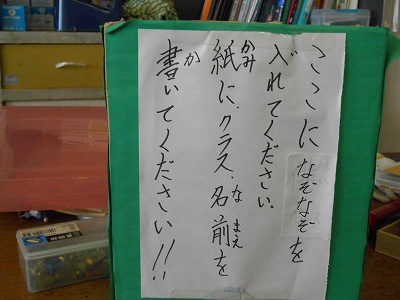 ここになぞなぞを
入れてください。
紙に、クラス、名前を
書いてください!!